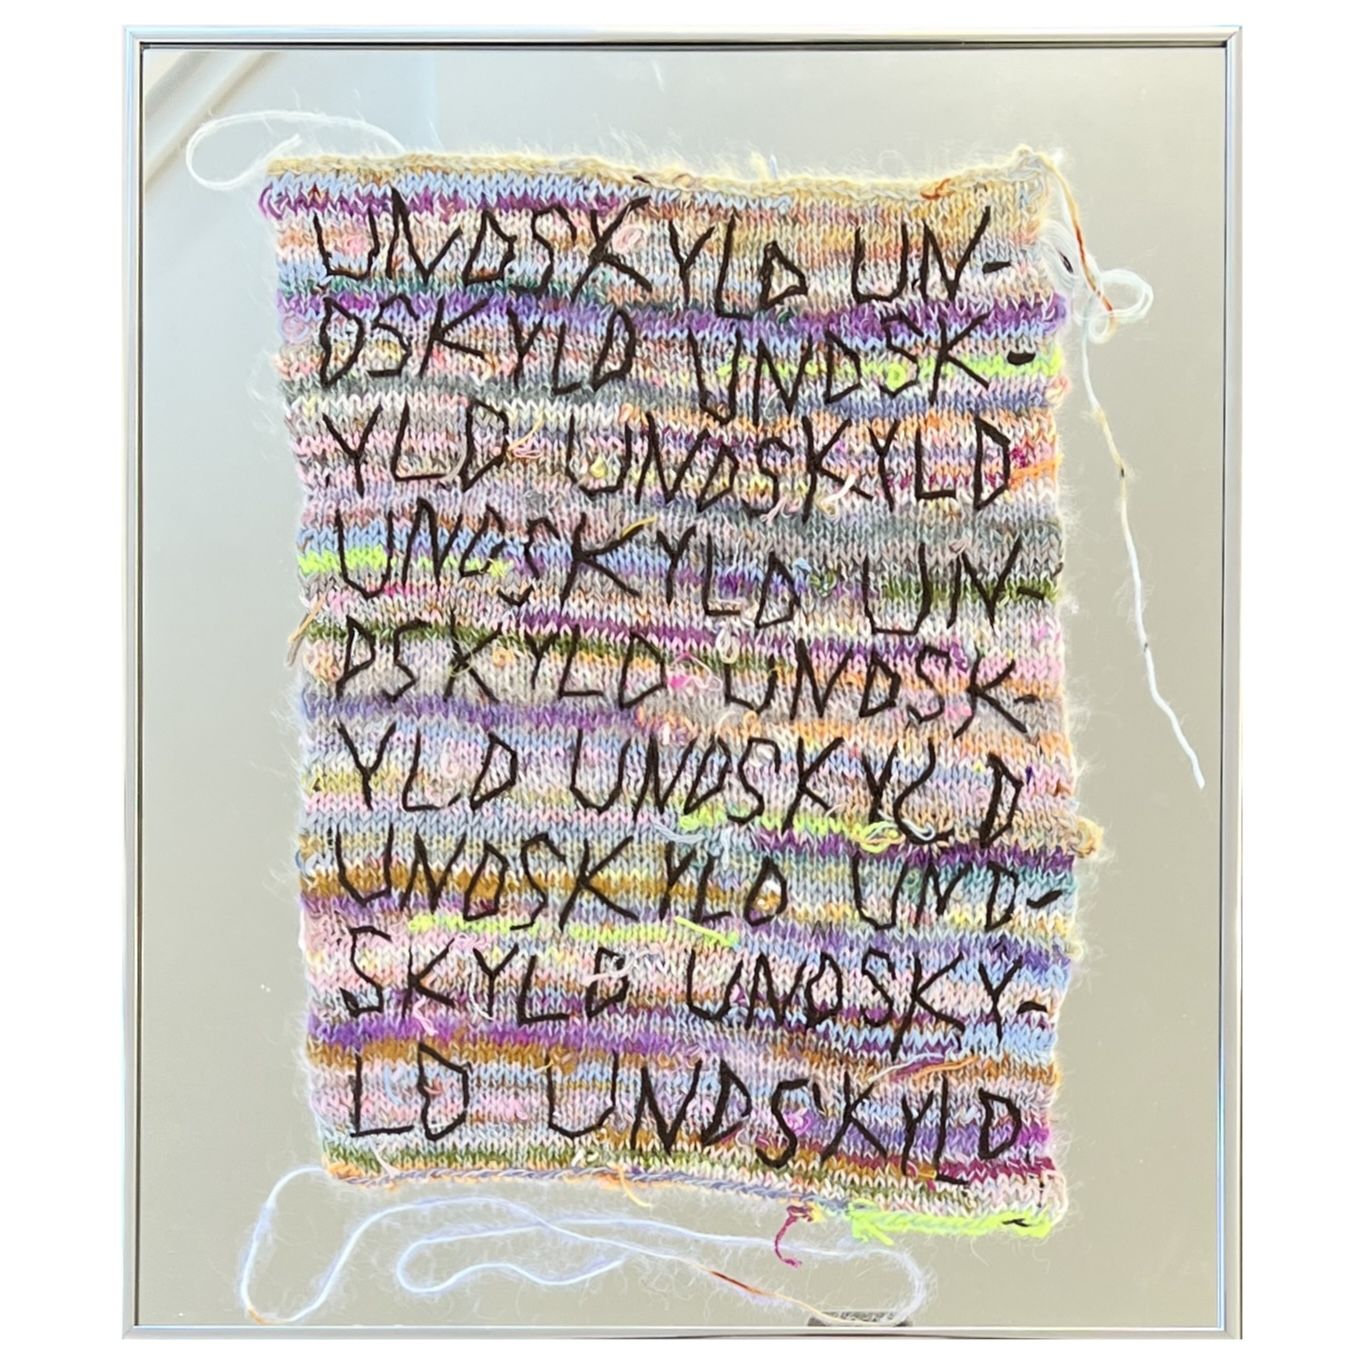 UNDSKYLD UN-
DSKYLD UNDSK-
YLD UNDSKYLD
UNDSKYLD UN-
DSKYLD UNDSK-
YLD UNDSKYLD
UNDSKYLD UND-
SKYLD UNDSKY-
LD UNDSKYLD